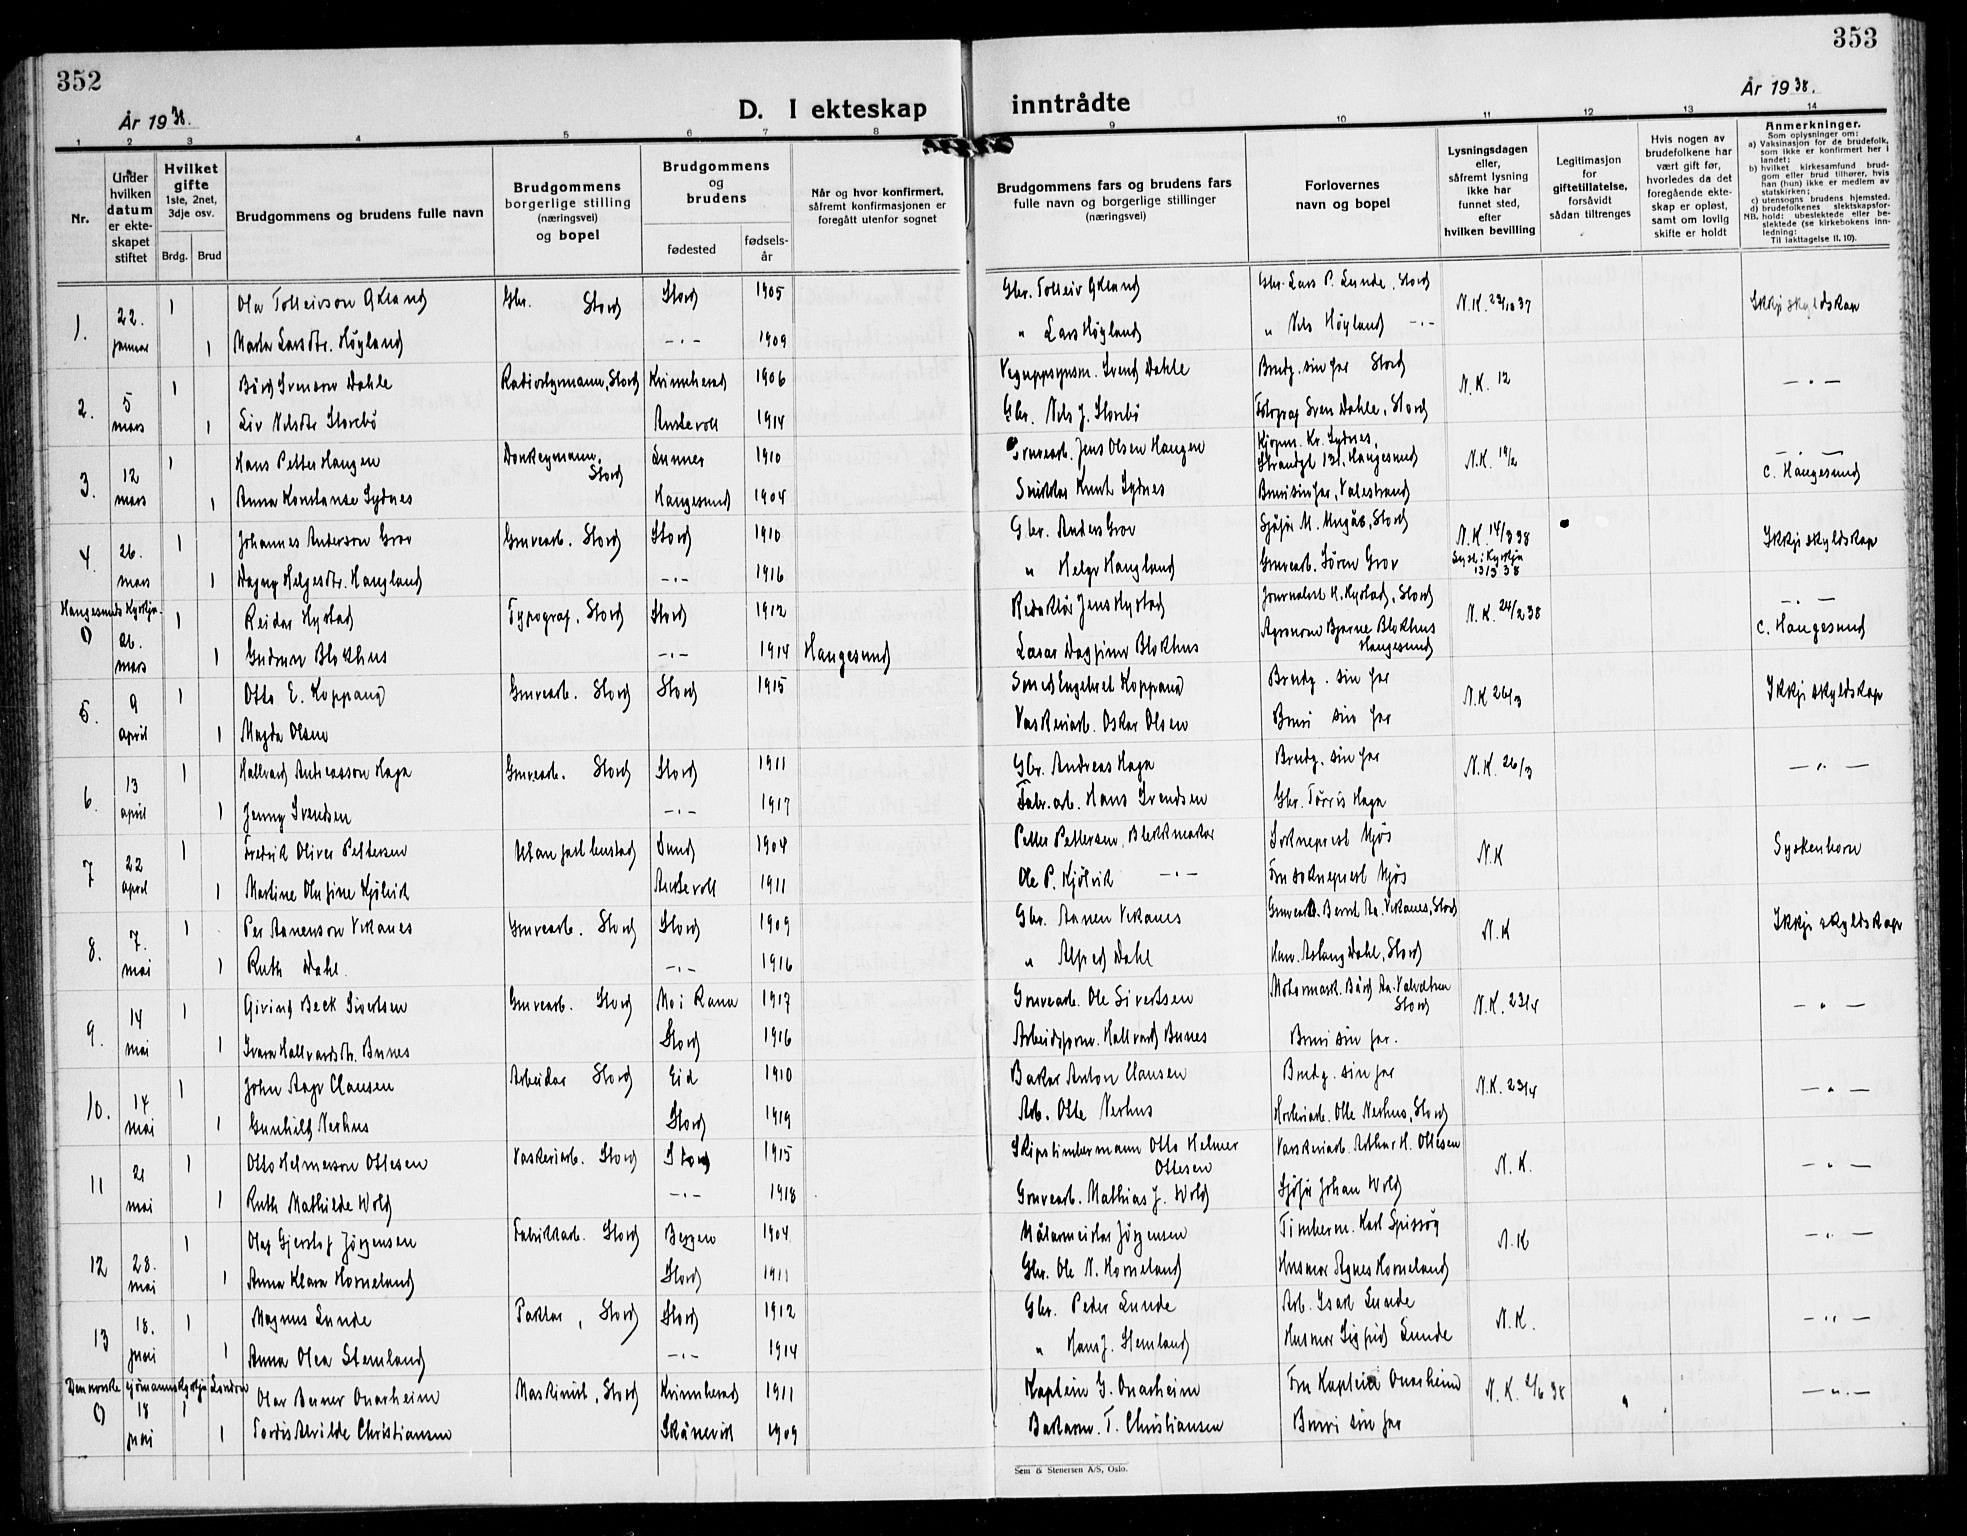 352
353
År 1938.
År 1938.
D. I ekteskap inntrådte
1 2 3 4 5 6 7 8 9 10 11 12 13 14
Nr.
Under hvilken datum er ekteskapet stiftet
Hvilket gifte 1ste, 2net, 3dje osv.
Brdg. Brud
Brudgommens og brudens fulle navn
Brudgommens borgerlige stilling (næringsvei) og bopel
Brudgommens og brudens
fødested fødselsår
Når og hvor konfirmert, såfremt konfirmasjonen er foregått utenfor sognet
Brudgommens fars og brudens fars fulle navn og borgerlige stillinger (næringsvei)
Forlovernes navn og bopel
Lysningsdagen eller, såfremt lysning ikke har funnet sted, efter hvilken bevilling
Legitimasjon for giftetillatelse, forsåvidt sådan tiltrenges
Hvis nogen av brudefolkene har vært gift før, hvorledes da det foregående ekteskap er opløst, samt om lovlig skifte er holdt
Anmerkninger.
Som oplysninger om:
a) Vaksinasjon for de brudefolk, som ikke er konfirmert her i landet;
b) hvilket kirkesamfund brudgom eller brud tilhører, hvis han (hun) ikke er medlem av statskirken;
c) utensogns brudens hjemsted.
d) brudefolkenes slektskapsforhold: ubeslektede eller beslektede (se kirkebokens innledning:
NB. Til iakttagelse II. 10).
1. 22. januar 1 Ola Tolleivson Økland Gbr. Stord Stord 1905 Gbr. Tolleiv Økland Gbr. Lars P. Lunde, Stord N.K. 23/10 37 Ikkje skyldskap
1 Marta Larsdtr. Høyland -"- 1909 " Lars Høyland " Nils Høyland -"-
2. 5 mars 1 Bård Svenson Dahle Stord Kvinnherad 1906 Vegoppsynsm. Svend Dahle Brudg. sin far Stord N.K. 12 -"-
1 Liv Nilsdtr Storebø Austevoll 1914 Gbr. Nils J. Storebø Fotograf Sven Dahle, Stord
3. 12 mars 1 Hans Petter Haugen Donkeymann, Stord Lunner 1910 Gruvearb. Jens Olsen Haugen Kjøpm. Kr. Sydnes, Strandgt 131, Haugesund N.K. 19/2 -"-
1 Anna Konstanse Sydnes Haugesund 1904 Snikkar Knut Sydnes Bruri sin far, Valestrand c. Haugesund
4. 26. mars 1 Johannes Anderson Grov Gruvearb. Stord Stord 1910 Gbr. Anders Grov Sjåfør M. Stord N.K. 14/3 38 Ikkje skyldskap
1 Dagny Helgesdtr. Haugland -"- 1916 " Helge Haugland Gruvearb. Søren Grov Lyst i Kyrkja 13/3 38
Haugesunds Kyrkja.
0) 26. mars 1 Reidar Hystad Typograf, Stord Stord 1912 Redaktør Jens Hystad Journalist H. Hystad, Stord N.K. 24/2 38 -"-
1 Gudrun Blokhus -"- 1914 Haugesund Lærar Dagfinn Blokhus Agronom Bjarne Blokhus Haugesund c. Haugesund
5. 9 april 1 Otto E. Koppang Gruvearb. Stord Stord 1915 Smed Engebret Koppang Brudg. sin far N.K 26/3 Ikkje skyldskap
1 Magda Olsen Vaskeriarb. Oskar Olsen Bruri sin far
6. 13 april 1 Hallvard Andreasson Haga Gruvearb. Stord Stord 1911 Gbr. Andreas Haga Brudg. sin far N.K. 26/3 -"-
1 Jenny Svendsen -"- 1917 Fabr. arb. Hans Svendsen Gbr. Tørris Haga
7 22 april 1 Fredrik Oliver Pettersen Utan fast bustad Sund 1904 Petter Pettersen, Blekkmakar Sokneprest Mjøs N.K Syskenborn
1 Martine Olufine Kjølvik Austevoll 1911 Ole P. Kjølvik -"- Fru sokneprest Mjøs
8. 7. mai 1 Per Aanenson Vikanes Gruvearb. Stord Stord 1909 Gbr. Aanen Vikanes Gruvearb. Bernt Aa. Vikanes, Stord N.K Ikkje skyldskap
1 Ruth Dahl. -"- 1916 " Alfred Dahl Aslaug Dahl, Stord
9. 14 mai 1 Eivind Beck Sivertsen Gruvearb. Stord Mo i Rana 1917 Gruvearb. Ole Sivertsen Motormask. Bård Aa. Valvatne Stord N.K. 23/4 -"-
1 Ivara Hallvardsdtr. Bunes Stord 1916 Arbeidsform. Hallvard Bunes Bruri sin far.
10. 14 mai 1 John Aage Clausen Arbeidar Stord Eid 1910 Bakar Anton Clausen Brudg. sin far N.K. 23/4 -"-
1 Gunhild Nerhus Stord 1919 Arb. Otte Nerhus Olle Nerhus, Stord
11 21 mai 1 Otto Helmerson Ottesen Vaskeriarb. Stord Stord 1915 Skipstimbermann Otto Helmer Ottesen Vaskeriarb. Arthur H. Ottesen N.K. -"-
1 Ruth Mathilde Wold -"- 1918 Gruvearb. Mathias J. Wold Sjåfør Johan Wold
12 28. mai 1 Olaf Gjerlof Jørgensen Fabrikkarb. Stord Bergen 1904 Målarmeistar Jørgensen Timberm. Karl Spissøy N.K -"-
1 Anna Klara Horneland Stord 1911 Gbr. Ole N. Horneland Husmor Agnes Horneland
13 18. juni 1 Magnus Lunde Pakkar, Stord Stord 1912 Gbr. Peder Lunde Arb. Isak Lunde N.K. -"-
1 Anna Olea Stemland -"- 1914 " Hans J. Stemland Husmor Sigfrid Lunde
Den norske sjømannskyrkja London
0) 18 juni 1 Olav Berner Onarheim Maskinist, Stord Kvinnherad 1911 Kaptein G. Onarheim Fru Kaptein Onarheim N.K. 2/6 38 -"-
1 Tordis Alvilde Christiansen Skånevik 1909 Bakarm. T. Christiansen Bruri sin far
Sem & Stenersen A/S, Oslo.